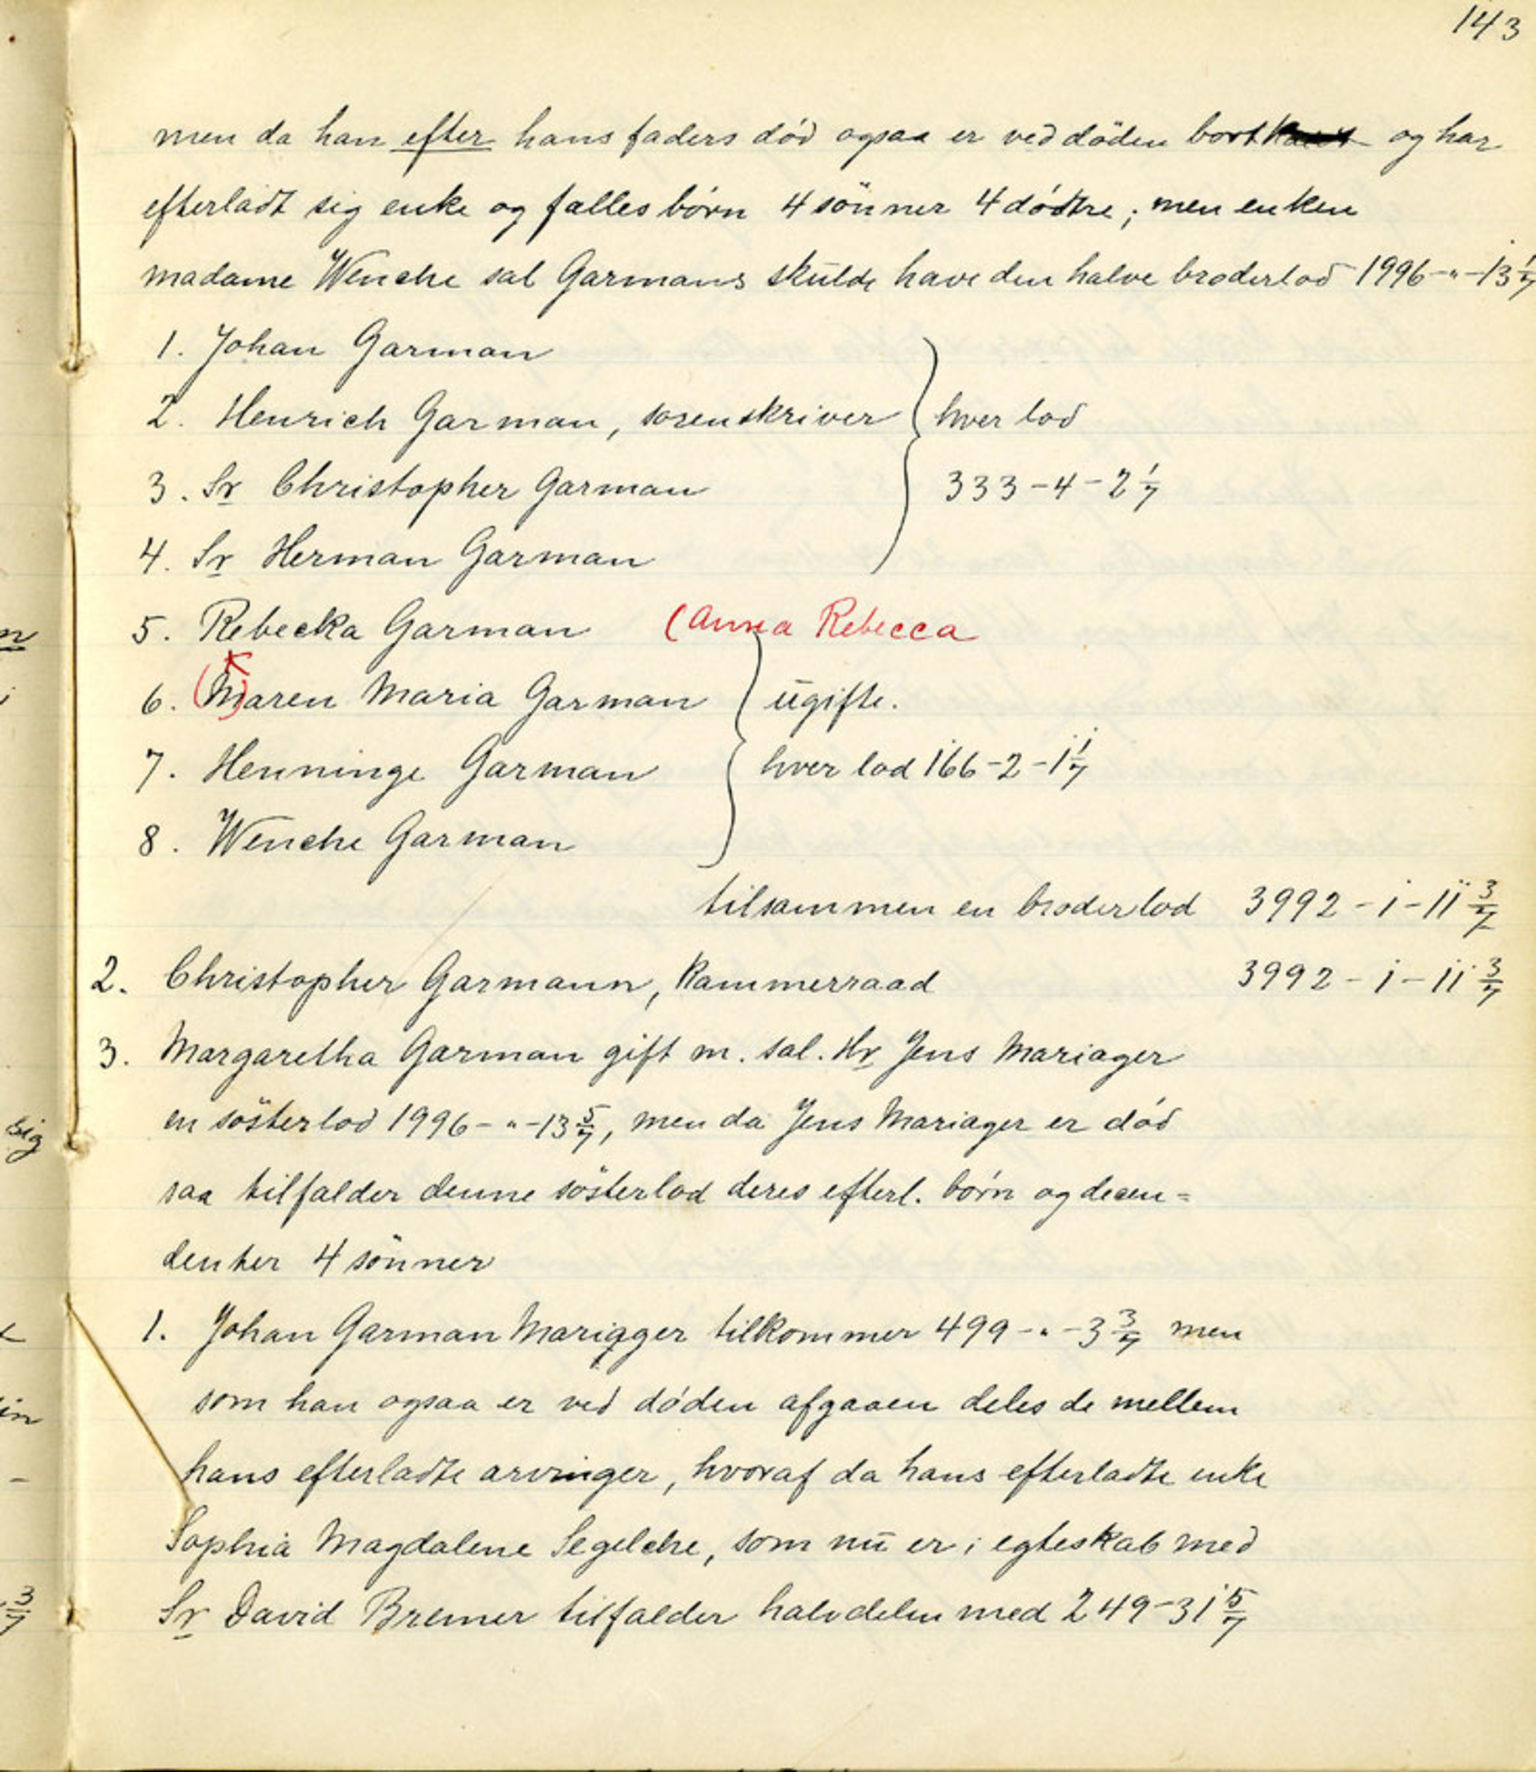 143
men da han efter hans faders död ogsaa er ved döden bort og har
efterladt sig enke og fælles börn 4 sönner 4 dödtre; men enken
madame Wenche sal Garmans skulde have den halve broderlod 1996-"-13 1/7
1. Johan Garman
2. Henrich Garman, sorenskriver } hver lod
3. Sr Christopher Garman 333-4-2 1/7
4. Sr Herman Garman
5. Rebecka Garman (Anna Rebecca
K
6. (M)aren Maria Garman } ugifte.
7. Henninge Garman hver lod 166-2-1 1/7
8. Wenche Garman
tilsammen en broderlod 3992-1-11 3/7
2. Christopher Garmann, kammerraad 3992-1-11 3/7
3. Margaretha Garman gift m. sal. Hr Jens Mariager
en sösterlod 1996-"-13 5/7, men da Jens Mariager er död
saa tilfalder denne sösterlod deres efterl. börn og decen=
denter 4 sönner
1. Johan Garman Mariager tilkommer 499-"-3 3/7 men
som han ogsaa er ved döden afgaaen deles de mellem
hans efterladte arvinger, hvoraf da hans efterladte enke
Sophia Magdalene Segelche, som nu er i egteskab med
Sr David Bremer tilfalder halvdelen med 249-31 5/7
sig
in
3/7